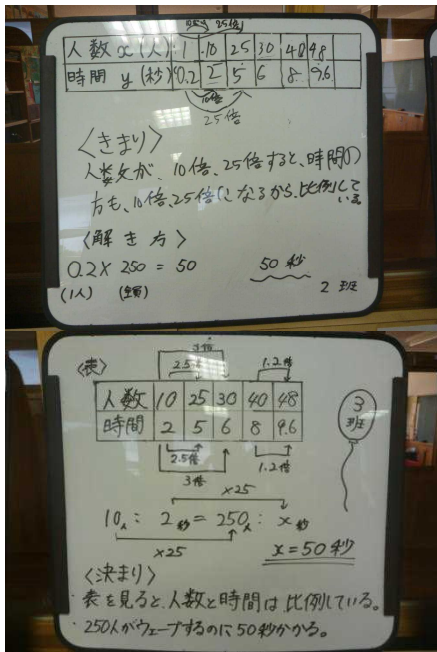 25倍
人数 x (人) 1 10 25 30 40 48
時間 y (秒) 0.2 2 5 6 8 9.6
10倍
25倍
〈きまり〉
人数が、10倍、25倍すると、時間の
方も、10倍、25倍になるから、比例して
いる
〈解き方〉
0.2 × 250 = 50
50秒
(1人) (全員)
2班
〈表〉
3倍
2.5倍 1.2倍
人数 10 25 30 40 48
時間 2 5 6 8 9.6
2.5倍 1.2倍
3倍
3
班
×25
10人 : 2秒 = 250人 : x秒
×25
x = 50秒
〈決まり〉
表を見ると、人数と時間は比例している。
250人がウェーブするのに50秒かかる。